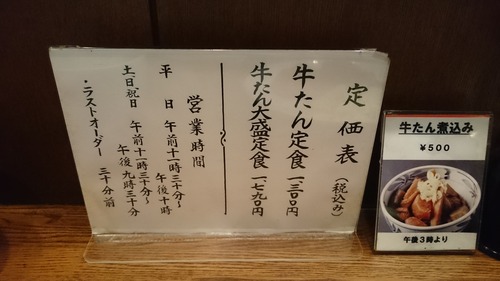 定価表（税込み）
牛たん定食 一三〇〇円
牛たん大盛定食 一七九〇円
営業時間
平日 午前十一時三十分〜
午後十時
土日祝日 午前十一時三十分〜
午後九時三十分
・ラストオーダー 三十分前
牛たん煮込み
￥500
午後３時より